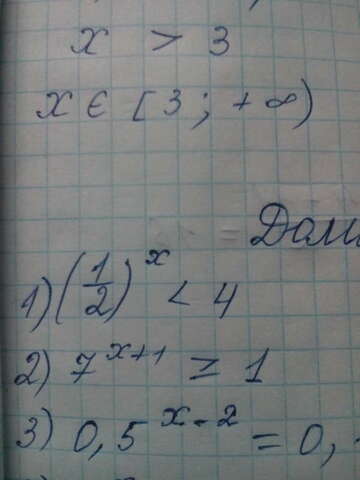 x > 3
x ∈ [3; +∞)
1) (1/2)^x < 4
2) 7^{x+1} ≥ 1
3) 0,5^{x-2} = 0,